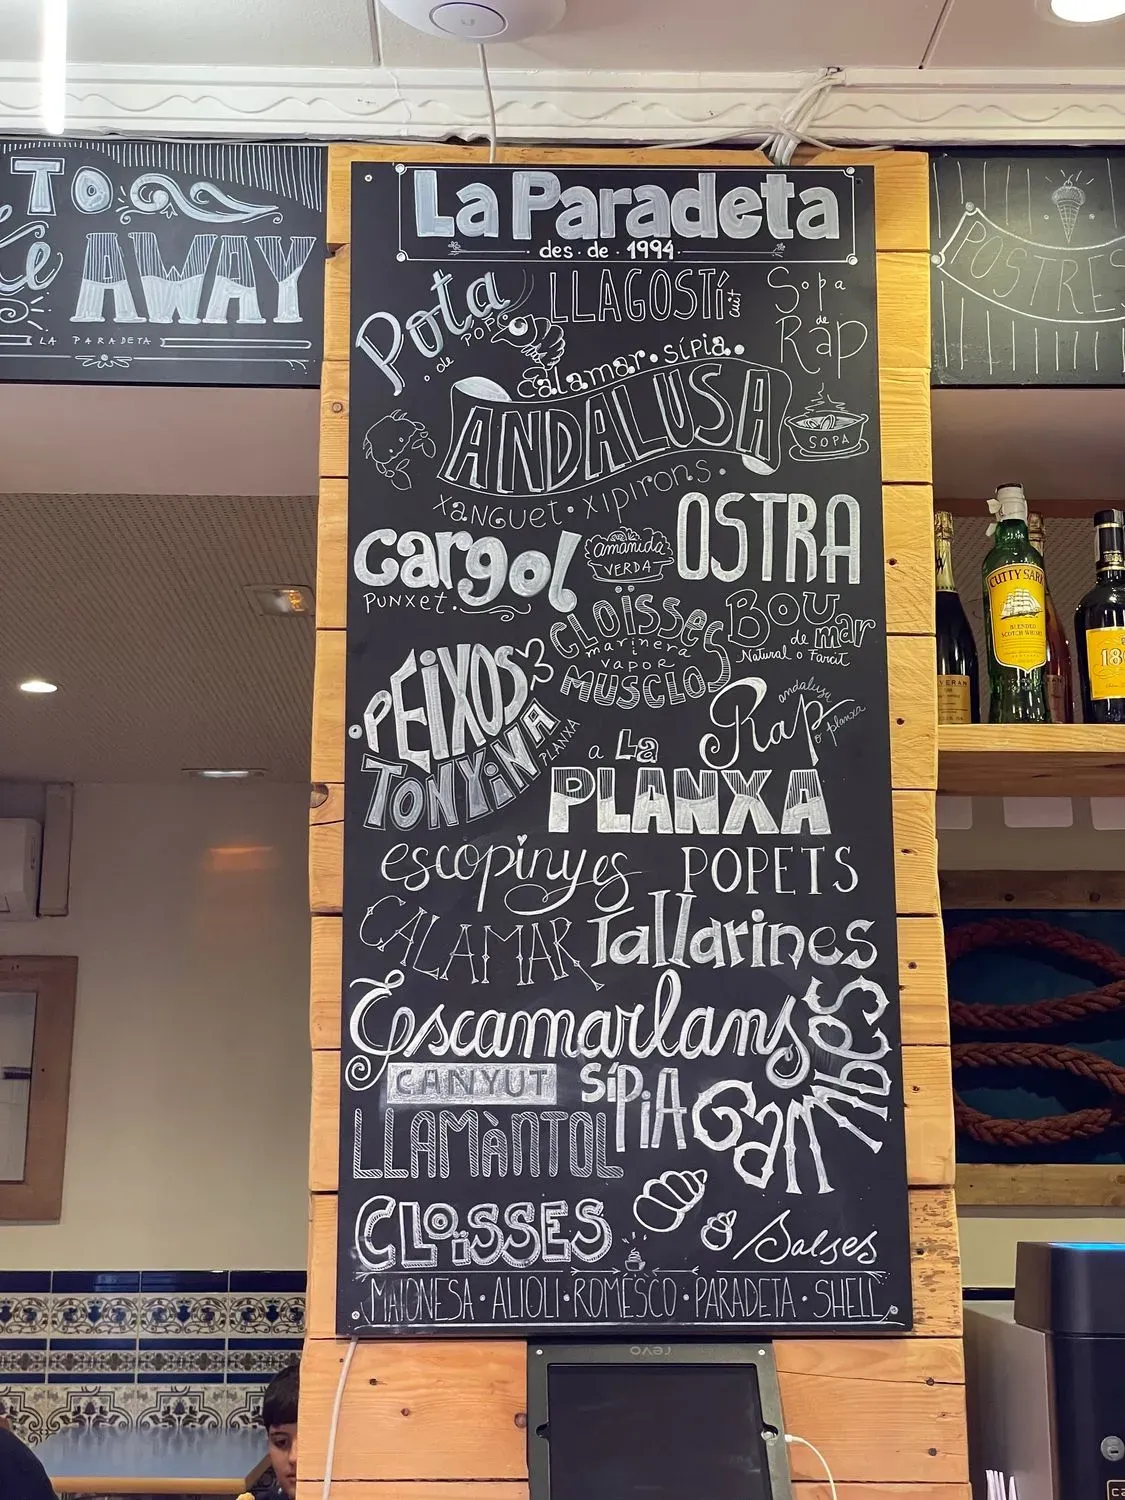 TO
AWAY
LA PARADETA
La Paradeta
des. de. 1994.
POSTRES
Pota
. de POP.
LLAGOSTÍ
cuit
Sopa
de
Rap
Calamar. sípia.
ANDALUSA
SOPA
xanguet. xipirons.
cargol
Punxet.
amanida
VERDA
OSTRA
CLOÏSSES
marinera
i
vapor
MUSCLOS
BOU
de mar
Natural o Farcit
PEIXOS
TONYINA
PLANXA
Rap
andalusa
o planxa
a La
PLANXA
escopinyes
POPETS
CALAMAR
Tallarines
Escamarlans
CANYUT
SíPiA
GamMbes
LLAMÀNTOL
CLOÏSSES
Salses
MAIONESA · ALIOLI · ROMESCO · PARADETA · SHELL
CUTTY SARK
BLENDED
SCOTCH WHISKY
revo